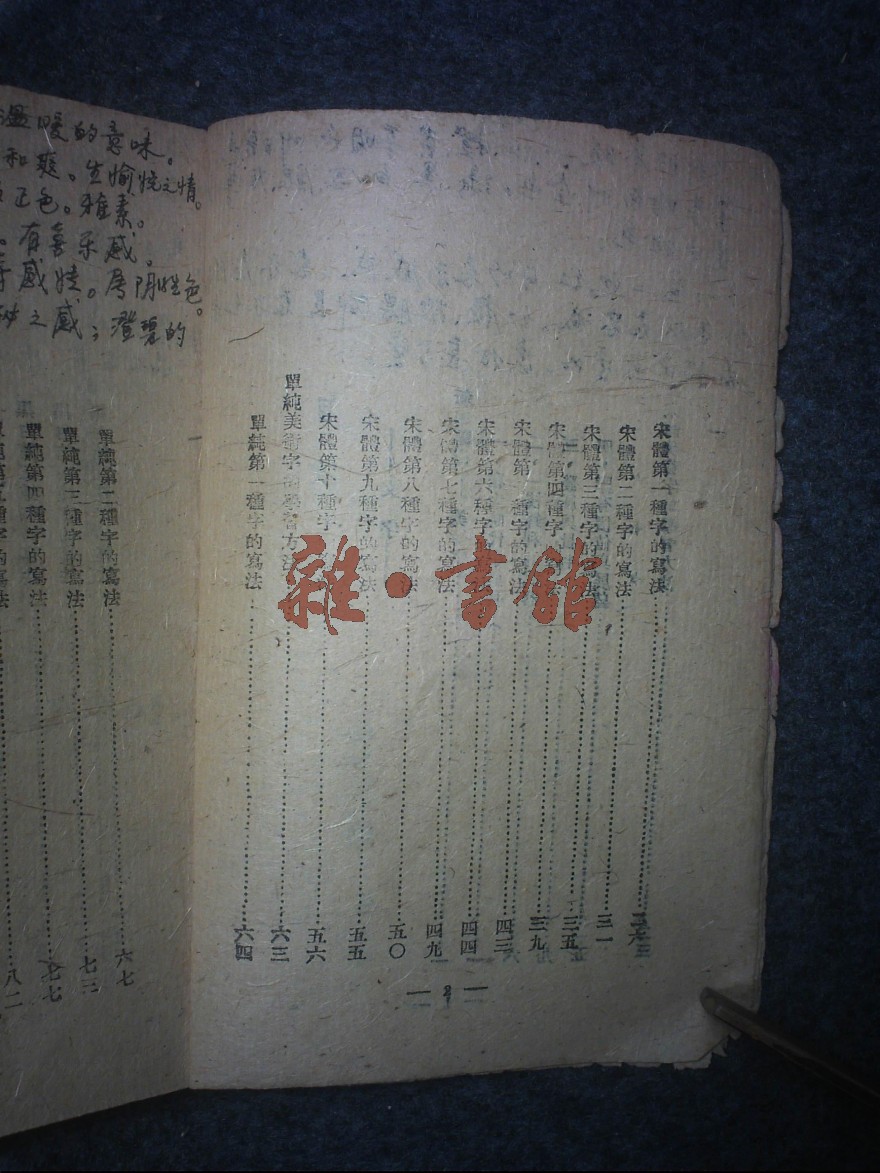 宋體第一種字的寫法
宋體第二種字的寫法……三一
宋體第三種字的寫法……三五
宋體第四種字的寫法……三九
宋體第 種字的寫法……四三
宋體第六種字……四四
宋體第七種字的寫法……四九
宋體第八種字的寫法……五〇
宋體第九種字的寫法……五五
宋體第十種字……五六
單純美術字的學習方法……六三
單純第一種字的寫法……六四
— 2 —
雜·書館
溫暖的意味。
和爽。生愉悅之情。
正色。雅素。
有喜乐感。
感 。屬阴性色。
之感；澄碧的
單純第二種字的寫法……六七
單純第三種字的寫法……七三
單純第四種字的寫法……七七
單純第五種字的寫法……八二